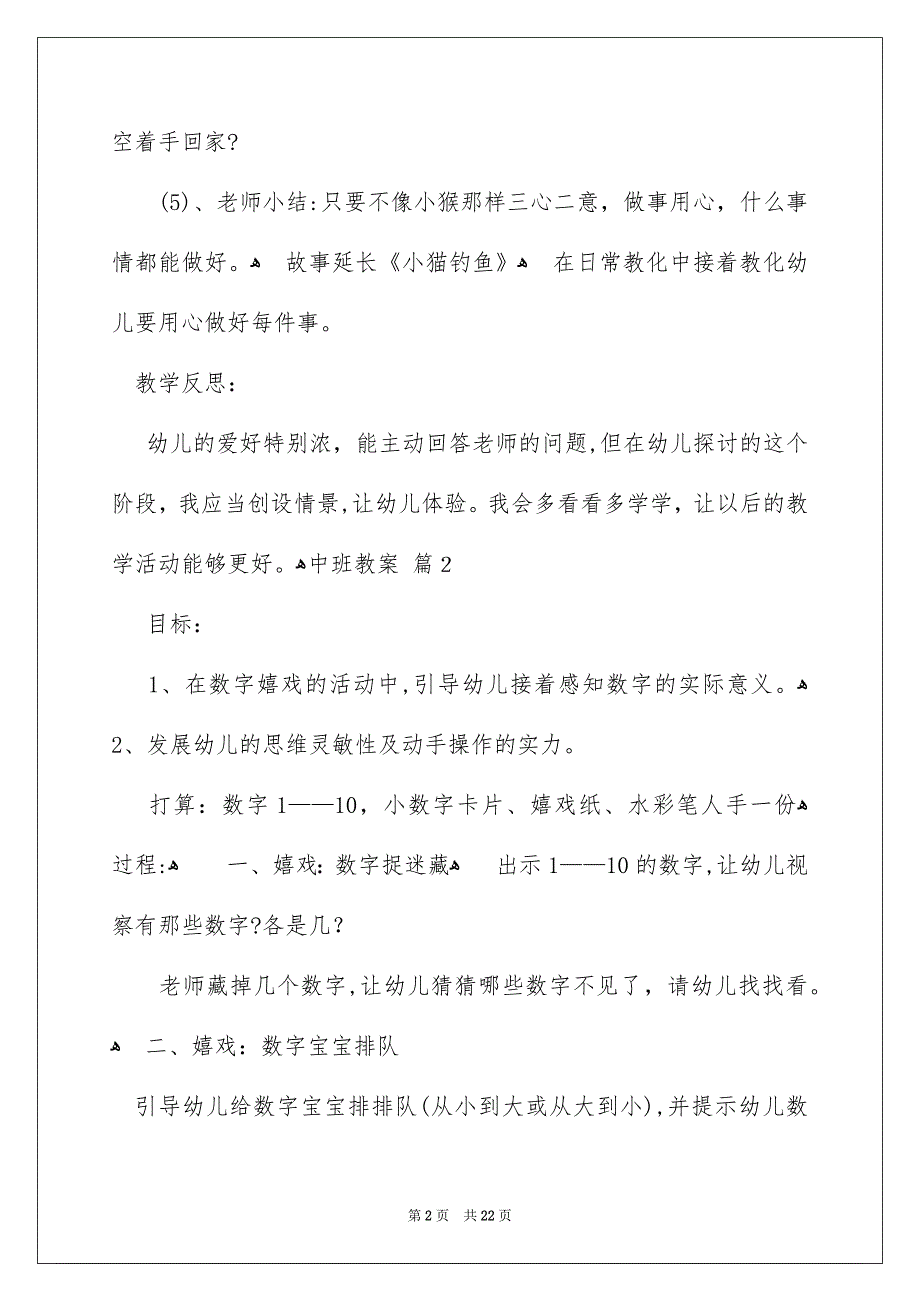 空着手回家?
(5)、老师小结:只要不像小猴那样三心二意，做事用心，什么事
情都能做好。ﻫ 故事延长《小猫钓鱼》ﻫ 在日常教化中接着教化幼
儿要用心做好每件事。
教学反思：
幼儿的爱好特别浓，能主动回答老师的问题,但在幼儿探讨的这个
阶段，我应当创设情景,让幼儿体验。我会多看看多学学，让以后的教
学活动能够更好。ﻫ中班教案 篇2
目标：
1、在数字嬉戏的活动中,引导幼儿接着感知数字的实际意义。ﻫ
2、发展幼儿的思维灵敏性及动手操作的实力。
打算：数字1——10，小数字卡片、嬉戏纸、水彩笔人手一份ﻫ
过程:ﻫ 一、嬉戏：数字捉迷藏ﻫ 出示1——10的数字,让幼儿视
察有那些数字?各是几？
老师藏掉几个数字,让幼儿猜猜哪些数字不见了，请幼儿找找看。
ﻫ 二、嬉戏：数字宝宝排队
引导幼儿给数字宝宝排排队(从小到大或从大到小),并提示幼儿数
第2页 共22页